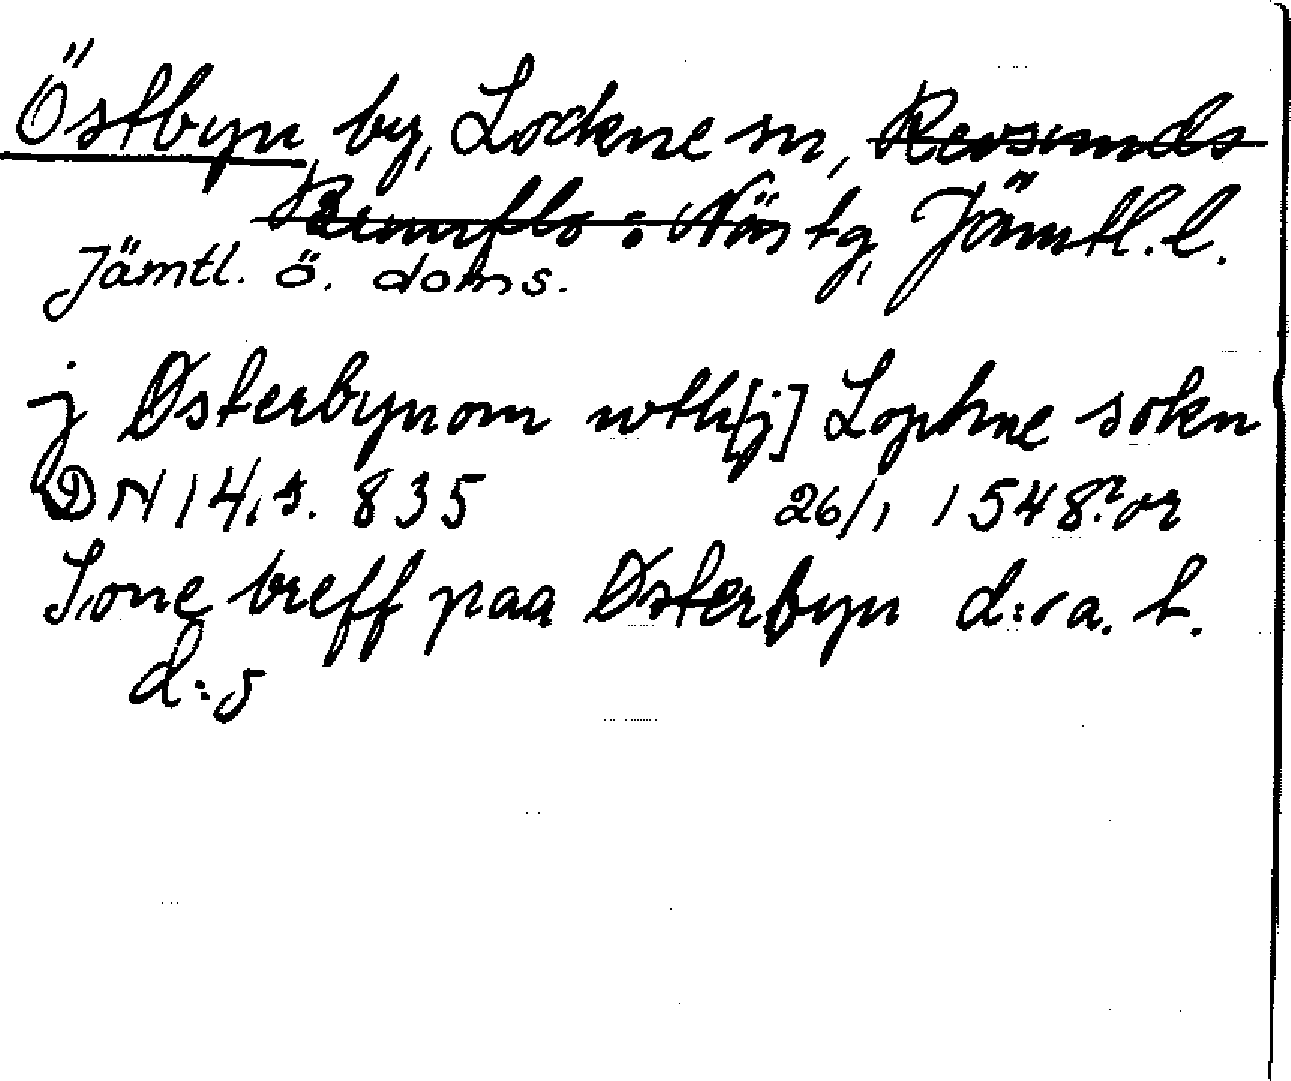 Östbyn, by, Lockne sn, Revsunds
Brunflo o. Näs tg, Jämtl. l.
Jämtl. ö. doms.
j Østerbynom wth[j] Lophne sokn
DN 14, s. 835 26/1 1548? or
Jone breff paa Østerbyn d:o a. t.
d:o